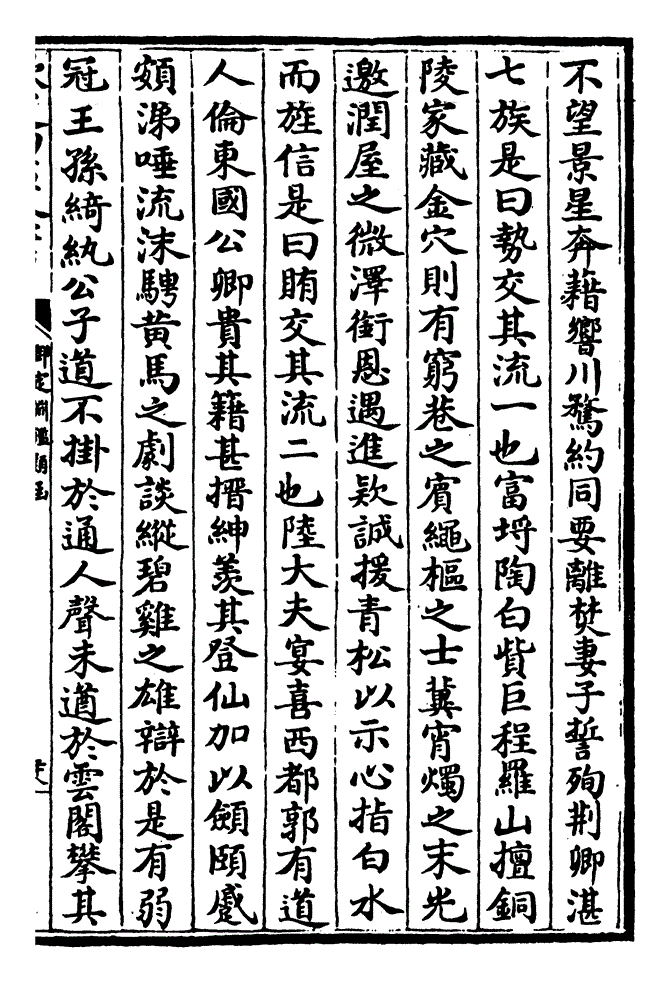 不望景星奔藉響川騖約同要離焚妻子誓殉荆卿湛
七族是曰勢交其流一也富埒陶白貲巨程羅山擅銅
陵家藏金穴則有窮巷之賓繩樞之士冀宵燭之末光
邀潤屋之微澤銜恩遇進欵誠援青松以示心指白水
而旌信是曰賄交其流二也陸大夫宴喜西都郭有道
人倫東國公卿貴其籍甚搢紳羨其登仙加以顩頤蹙
頞涕唾流沫騁黄馬之劇談縱碧雞之雄辯於是有弱
冠王孫綺紈公子道不掛於通人聲未遒於雲閣攀其
御定淵鑑類函